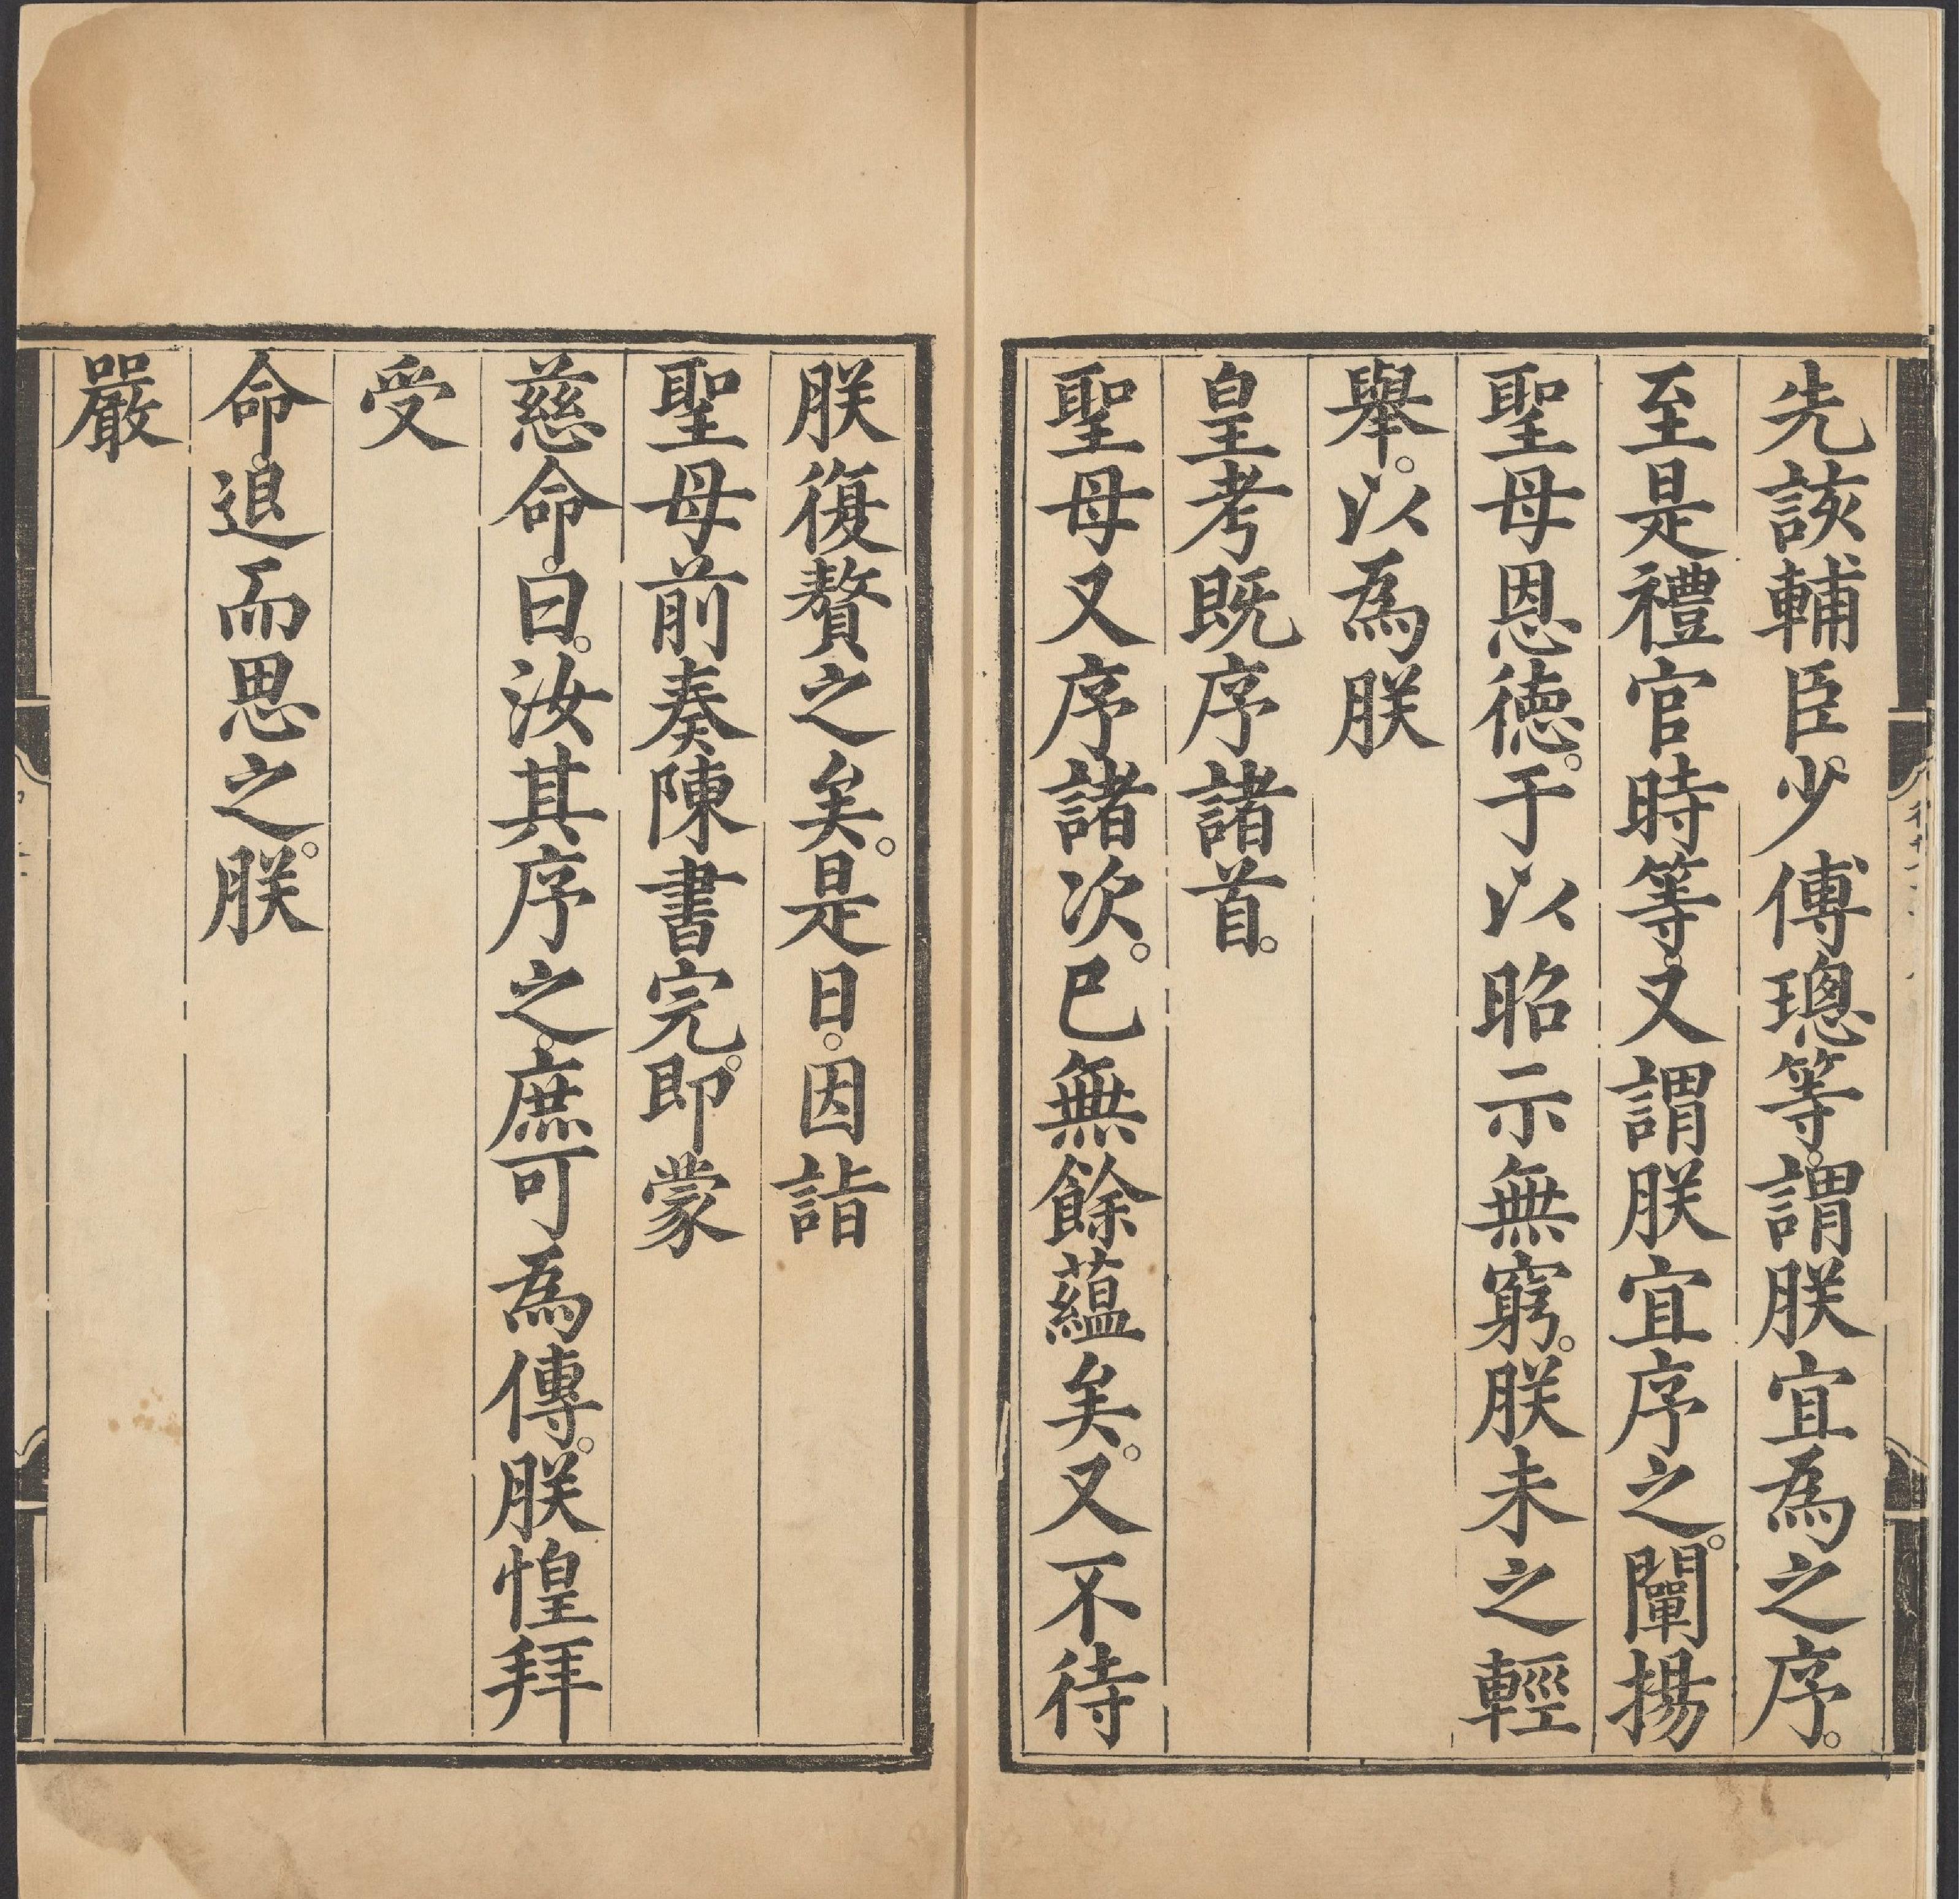 先該輔臣少傅璁等。謂朕宜為之序。
至是禮官時等。又謂朕宜序之。闡揚
聖母恩徳。于以昭示無窮。朕未之輕
舉。以為朕
皇考既序諸首。
聖母又序諸次。已無餘蘊矣。又不待
朕復贅之矣。是日。因詣
聖母前奏陳書完。即蒙
慈命。曰。汝其序之。庶可為傳。朕惶拜
受
嚴
命。退而思之。朕